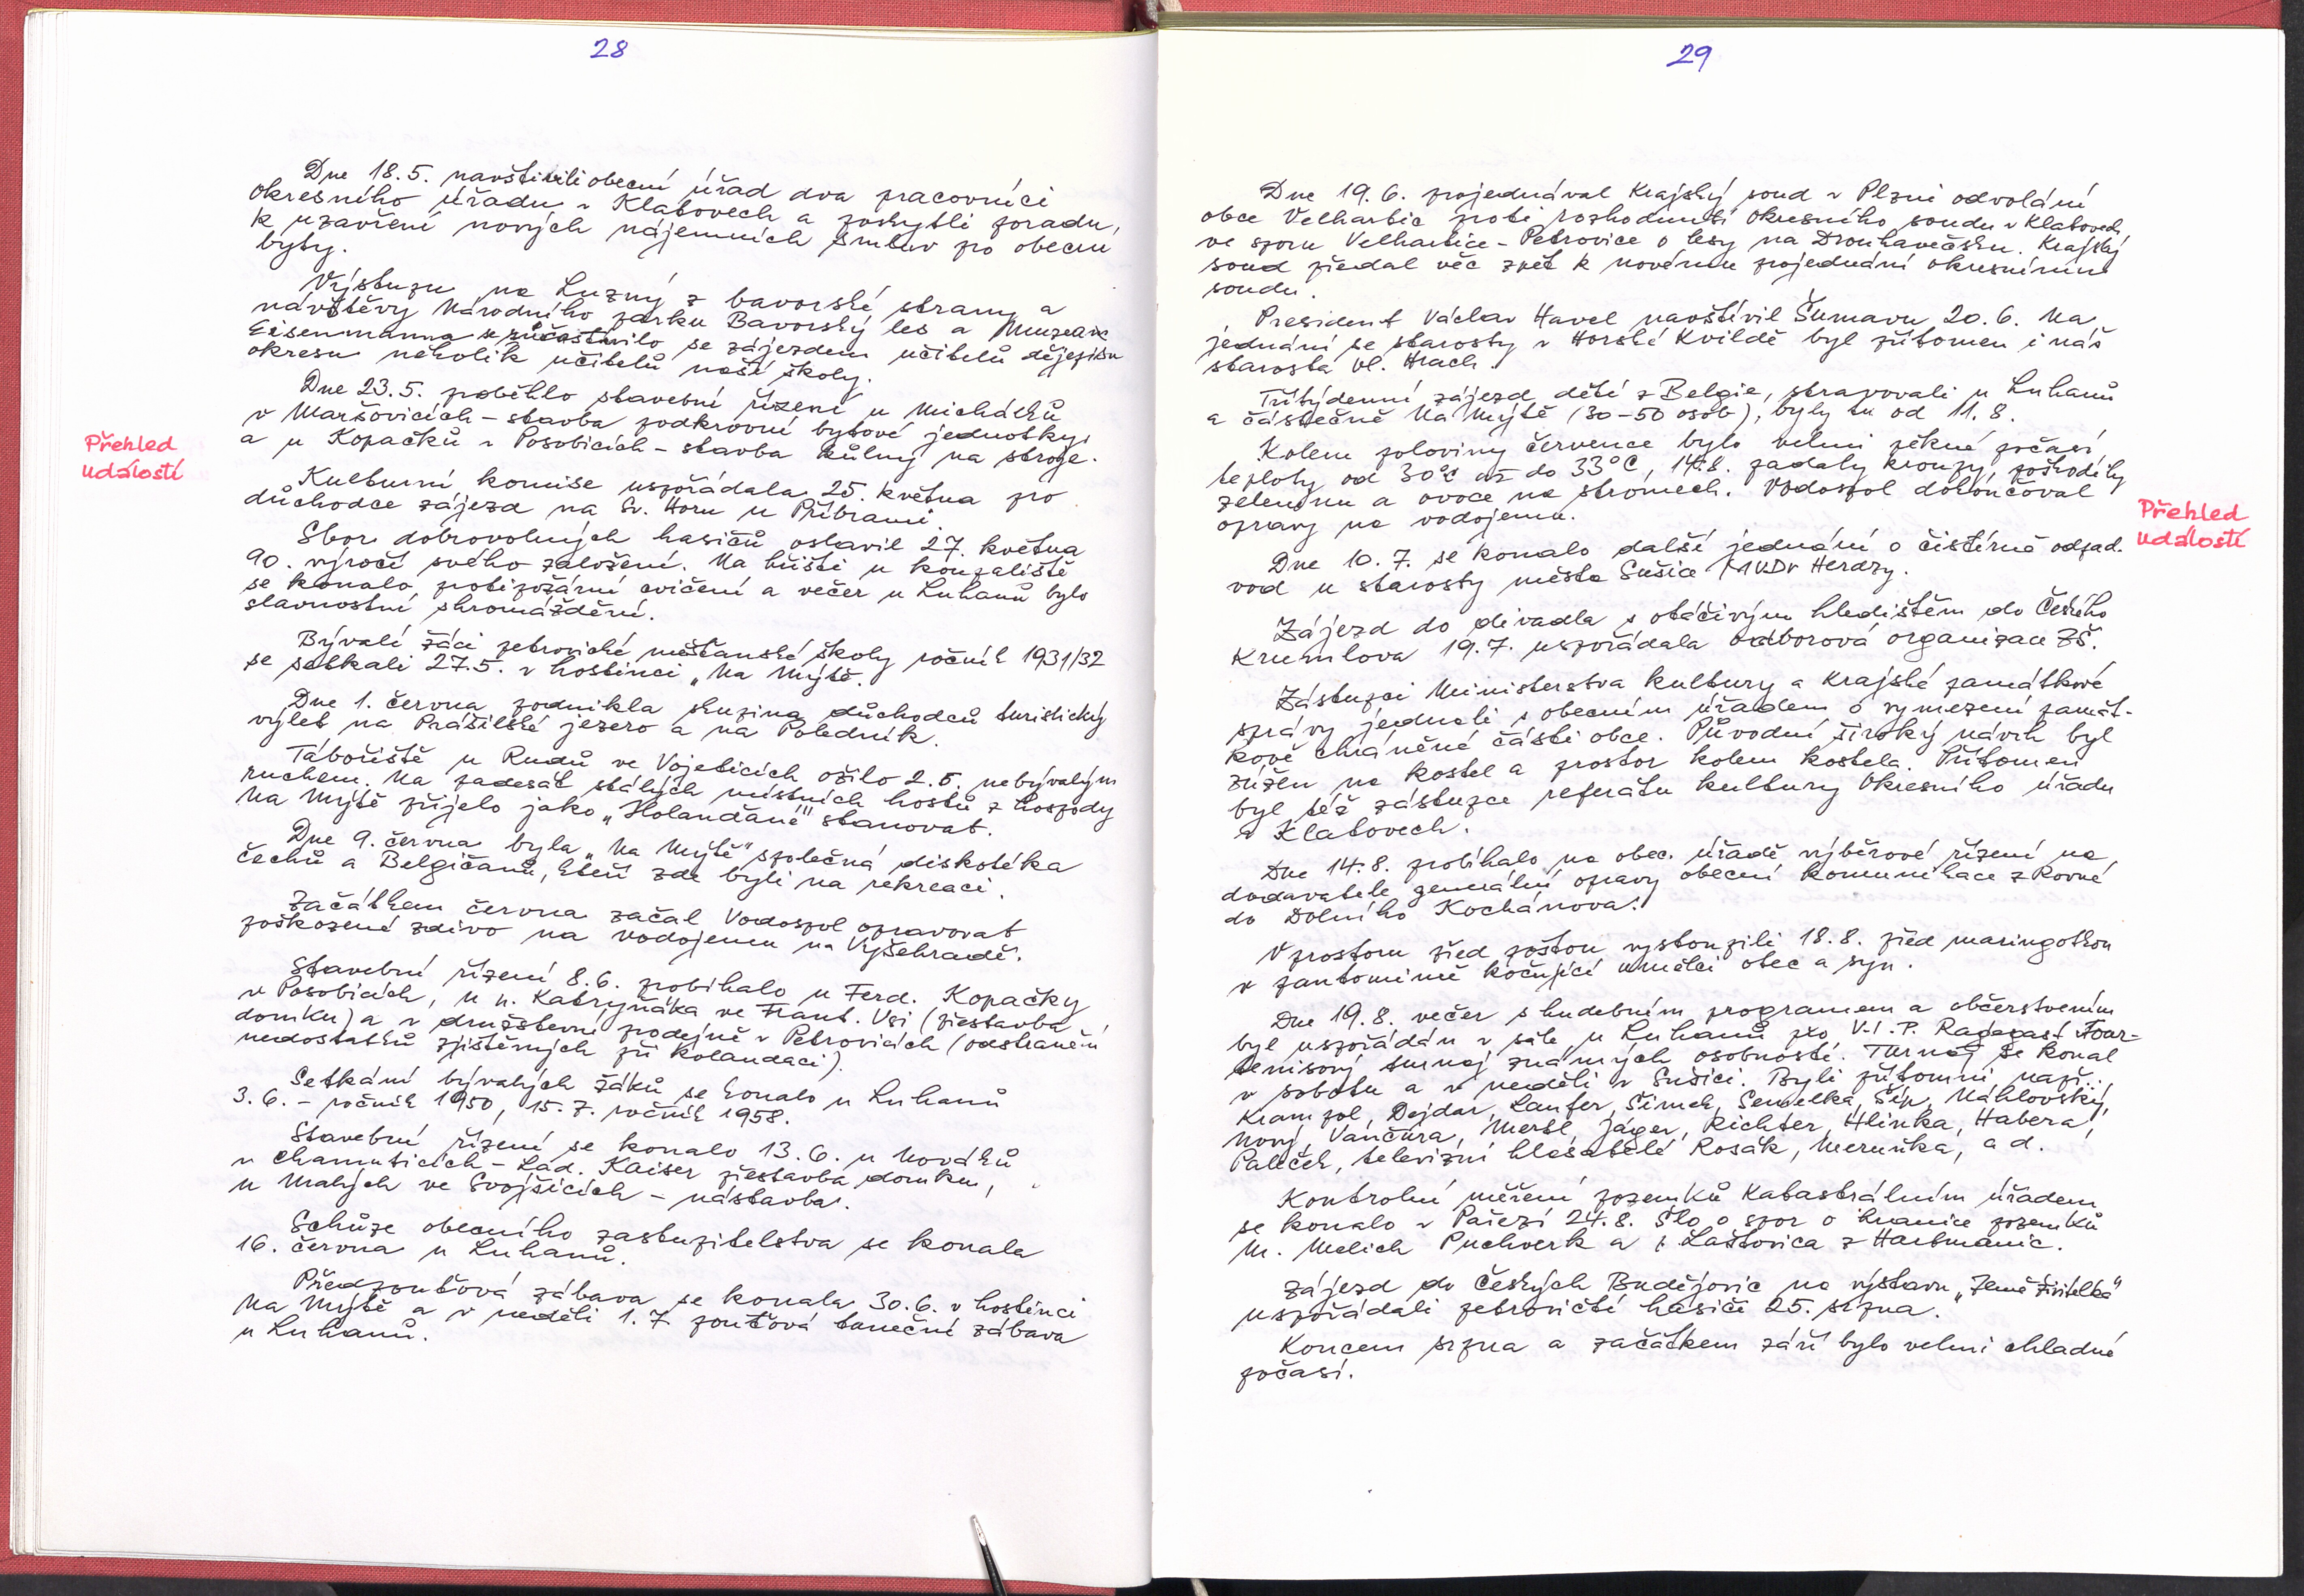 28
Dne 18.5. navštivili obecní úřad dva pracovníci
Okresního úřadu v Klatovech a poskytli poradu,
k uzavření nových nájemních smluv pro obecní
byty.
Výstupu na Luzný z bavorské strany a
návštěvy Národního parku Bavorský les a Muzea
Eisenmanna se zúčastnilo se zájezdem učitelů dějepisu
okresu několik učitelů naší školy.
Dne 23.5. proběhlo stavební řízení u Michálků
v Maršovicích - stavba podkrovní bytové jednotky,
a u Kopačků v Posobicích - stavba kůlny na stroje.
Přehled
událostí
Kulturní komise uspořádala 25. května pro
důchodce zájezd na Sv. Horu u Příbrami.
Sbor dobrovolných hasičů oslavil 27. května
90. výročí svého založení. Na hřišti u koupaliště
se konalo protipožární cvičení a večer u Luhanů bylo
slavnostní shromáždění.
Bývalí žáci petrovické měšťanské školy ročník 1931/32
se setkali 27.5. v hostinci „Na Mýtě.
Dne 1. června podnikla skupina důchodců turistický
výlet na Prášilské jezero a na Poledník.
Tábořiště u Rudů ve Vojeticích ožilo 2.6. nebývalým
ruchem. Na padesát stálých místních hostů z hospody
Na Mýtě přijelo jako „Holanďané" stanovat.
Dne 9. června byla „Na Mýtě" společná diskotéka
Čechů a Belgičanů, kteří zde byli na rekreaci.
Začátkem června začal Vodospol opravovat
poškozené zdivo na vodojemu na Vyšehradě.
Stavební řízení 8.6. probíhalo u Ferd. Kopačky
v Posobicích, u p. Katryňáka ve Frant. Vsi (přestavba
domku) a v družstevní prodejně v Petrovicích (odstranění
nedostatků zjištěných při kolaudaci).
Setkání bývalých žáků se konalo u Luhanů
3.6. - ročník 1950, 15.7. ročník 1958.
Stavební řízení se konalo 13.6. u Nováků
v Chamuticích - Lad. Kaiser přestavba domku,
u Malých ve Svojšicích - nástavba.
Schůze obecního zastupitelstva se konala
16. června u Luhanů.
Předpouťová zábava se konala 30.6. v hostinci
Na Mýtě a v neděli 1.7. pouťová taneční zábava
u Luhanů.
29
Dne 19.6. projednával Krajský soud v Plzni odvolání
obce Velhartic proti rozhodnutí Okresního soudu v Klatovech
ve sporu Velhartice - Petrovice o lesy na Drouhavečsku. Krajský
soud předal věc zpět k novému projednání okresnímu
soudu.
President Václav Havel navštívil Šumavu 20.6. Na
jednání se starosty v Horské Kvildě byl přítomen i náš
starosta Vl. Hrach.
Třítýdenní zájezd dětí z Belgie, stravovali u Luhanů
a částečně Na Mýtě (30-50 osob), byly tu od 11.8.
Kolem poloviny července bylo velmi pěkné počasí
teploty od 30°C až do 33°C, 14.8. padaly kroupy, poškodily
zeleninu a ovoce na stromech. Vodospol dokončoval
opravy na vodojemu.
Přehled
událostí
Dne 10.7. se konalo další jednání o čistírně odpad.
vod u starosty města Sušice MVDr Herdzy.
Zájezd do divadla s otáčivým hledištěm do Českého
Krumlova 19.7. uspořádala Odborová organizace ZŠ.
Zástupci Ministerstva kultury a Krajské památkové
správy jednali s obecním úřadem o vymezení památ-
kově chráněné části obce. Původní široký návrh byl
zúžen na kostel a prostor kolem kostela. Přítomen
byl též zástupce referátu kultury Okresního úřadu
v Klatovech.
Dne 14.8. probíhalo na obec. úřadě výběrové řízení na
dodavatele generální opravy obecní komunikace z Rovné
do Dolního Kochánova.
V prostoru před poštou vystoupili 18.8. před maringotkou
v pantomimě kočující umělci otec a syn.
Dne 19.8. večer s hudebním programem a občerstvením
byl uspořádán v sále u Luhanů pro V.I.P. Ragazast Tour-
tenisový turnaj známých osobností. Turnaj se konal
v sobotu a v neděli v Sušici. Byli přítomni např.
Krampol, Dejdar, Laufer, Šimek, Semelka, Šíp, Náhlovský,
Nový, Vančura, Meršl, Jáger, Richter, Hlinka, Habera,
Paleček, televizní hlasatelé Rosák, Meruňka, a d.
Kontrolní měření pozemků Katastrálním úřadem
se konalo v Pařezí 24.8. Šlo o spor o hranice pozemků
M. Melich Puchverk a Laštovica z Hartmanic.
Zájezd do Českých Budějovic na výstavu „Země živitelka"
uspořádali petrovičtí hasiči 25. srpna.
Koncem srpna a začátkem září bylo velmi chladné
počasí.